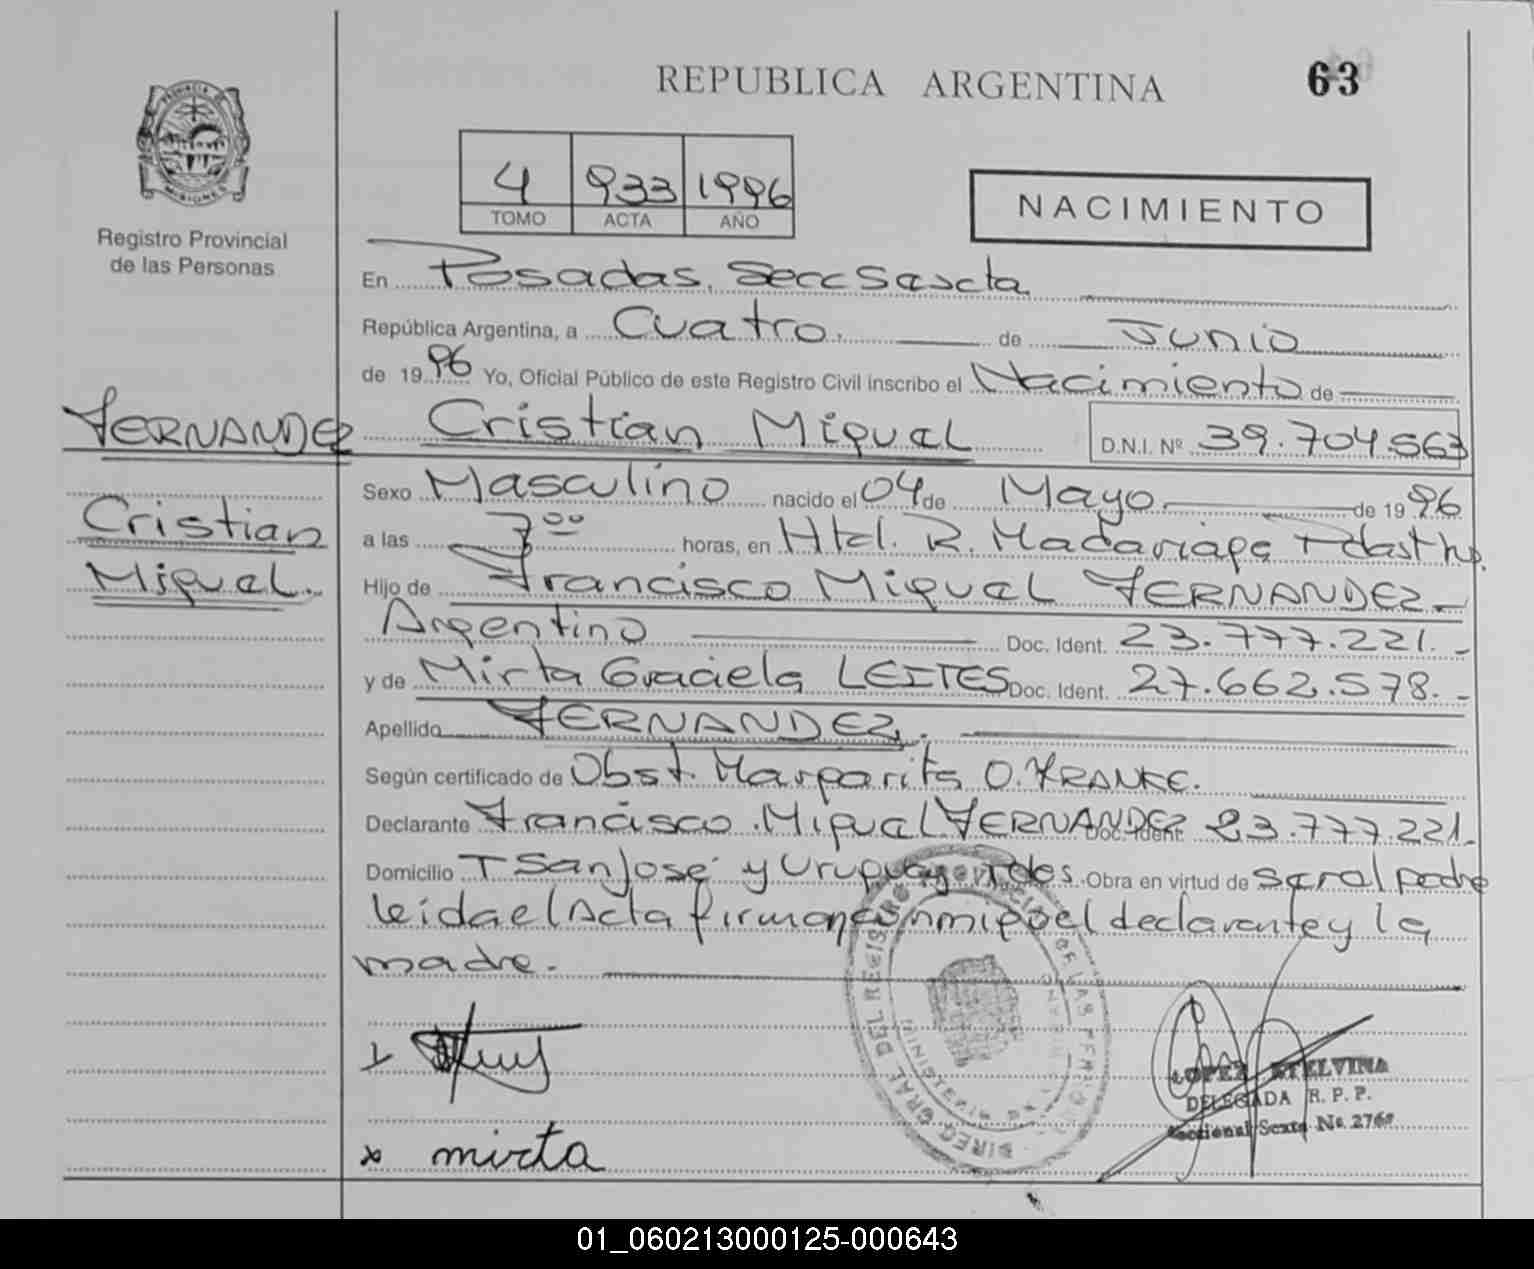 REPUBLICA ARGENTINA
63
PROVINCIA DE MISIONES
Registro Provincial
de las Personas
4 933 1996
TOMO ACTA AÑO
NACIMIENTO
En Posadas, Secc Sexcta
República Argentina, a Cuatro. de Junio
de 1996 Yo, Oficial Público de este Registro Civil inscribo el Nacimiento de
FERNANDEZ Cristian Miguel D.N.I. Nº 39.704.563
Sexo Masculino nacido el 04 de Mayo de 1996
Cristian
a las 7 00 horas, en Htal. R. Madariaga
Miguel.
Hijo de Francisco Miguel FERNANDEZ
Argentino Doc. Ident. 23.777.221.-
y de Mirta Graciela LEITES Doc. Ident. 27.662.578.-
Apellido FERNANDEZ.
Según certificado de Obst. Margarita O. FRANKE.
Declarante Francisco Miguel FERNANDEZ Doc. Ident. 23.777.221.
Domicilio T San José y Uruguay Pdas. Obra en virtud de ser el padre
leida el Acta firman conmigo el declarante y la
madre.
x
x mirta
DIREC GRAL DEL REGISTRO PROVINCIAL DE LAS PERSONAS
MINISTERIO DE GOBIERNO
LOPEZ ETELVINA
DELEGADA R. P. P.
Seccional Sexta No 276
01_060213000125-000643